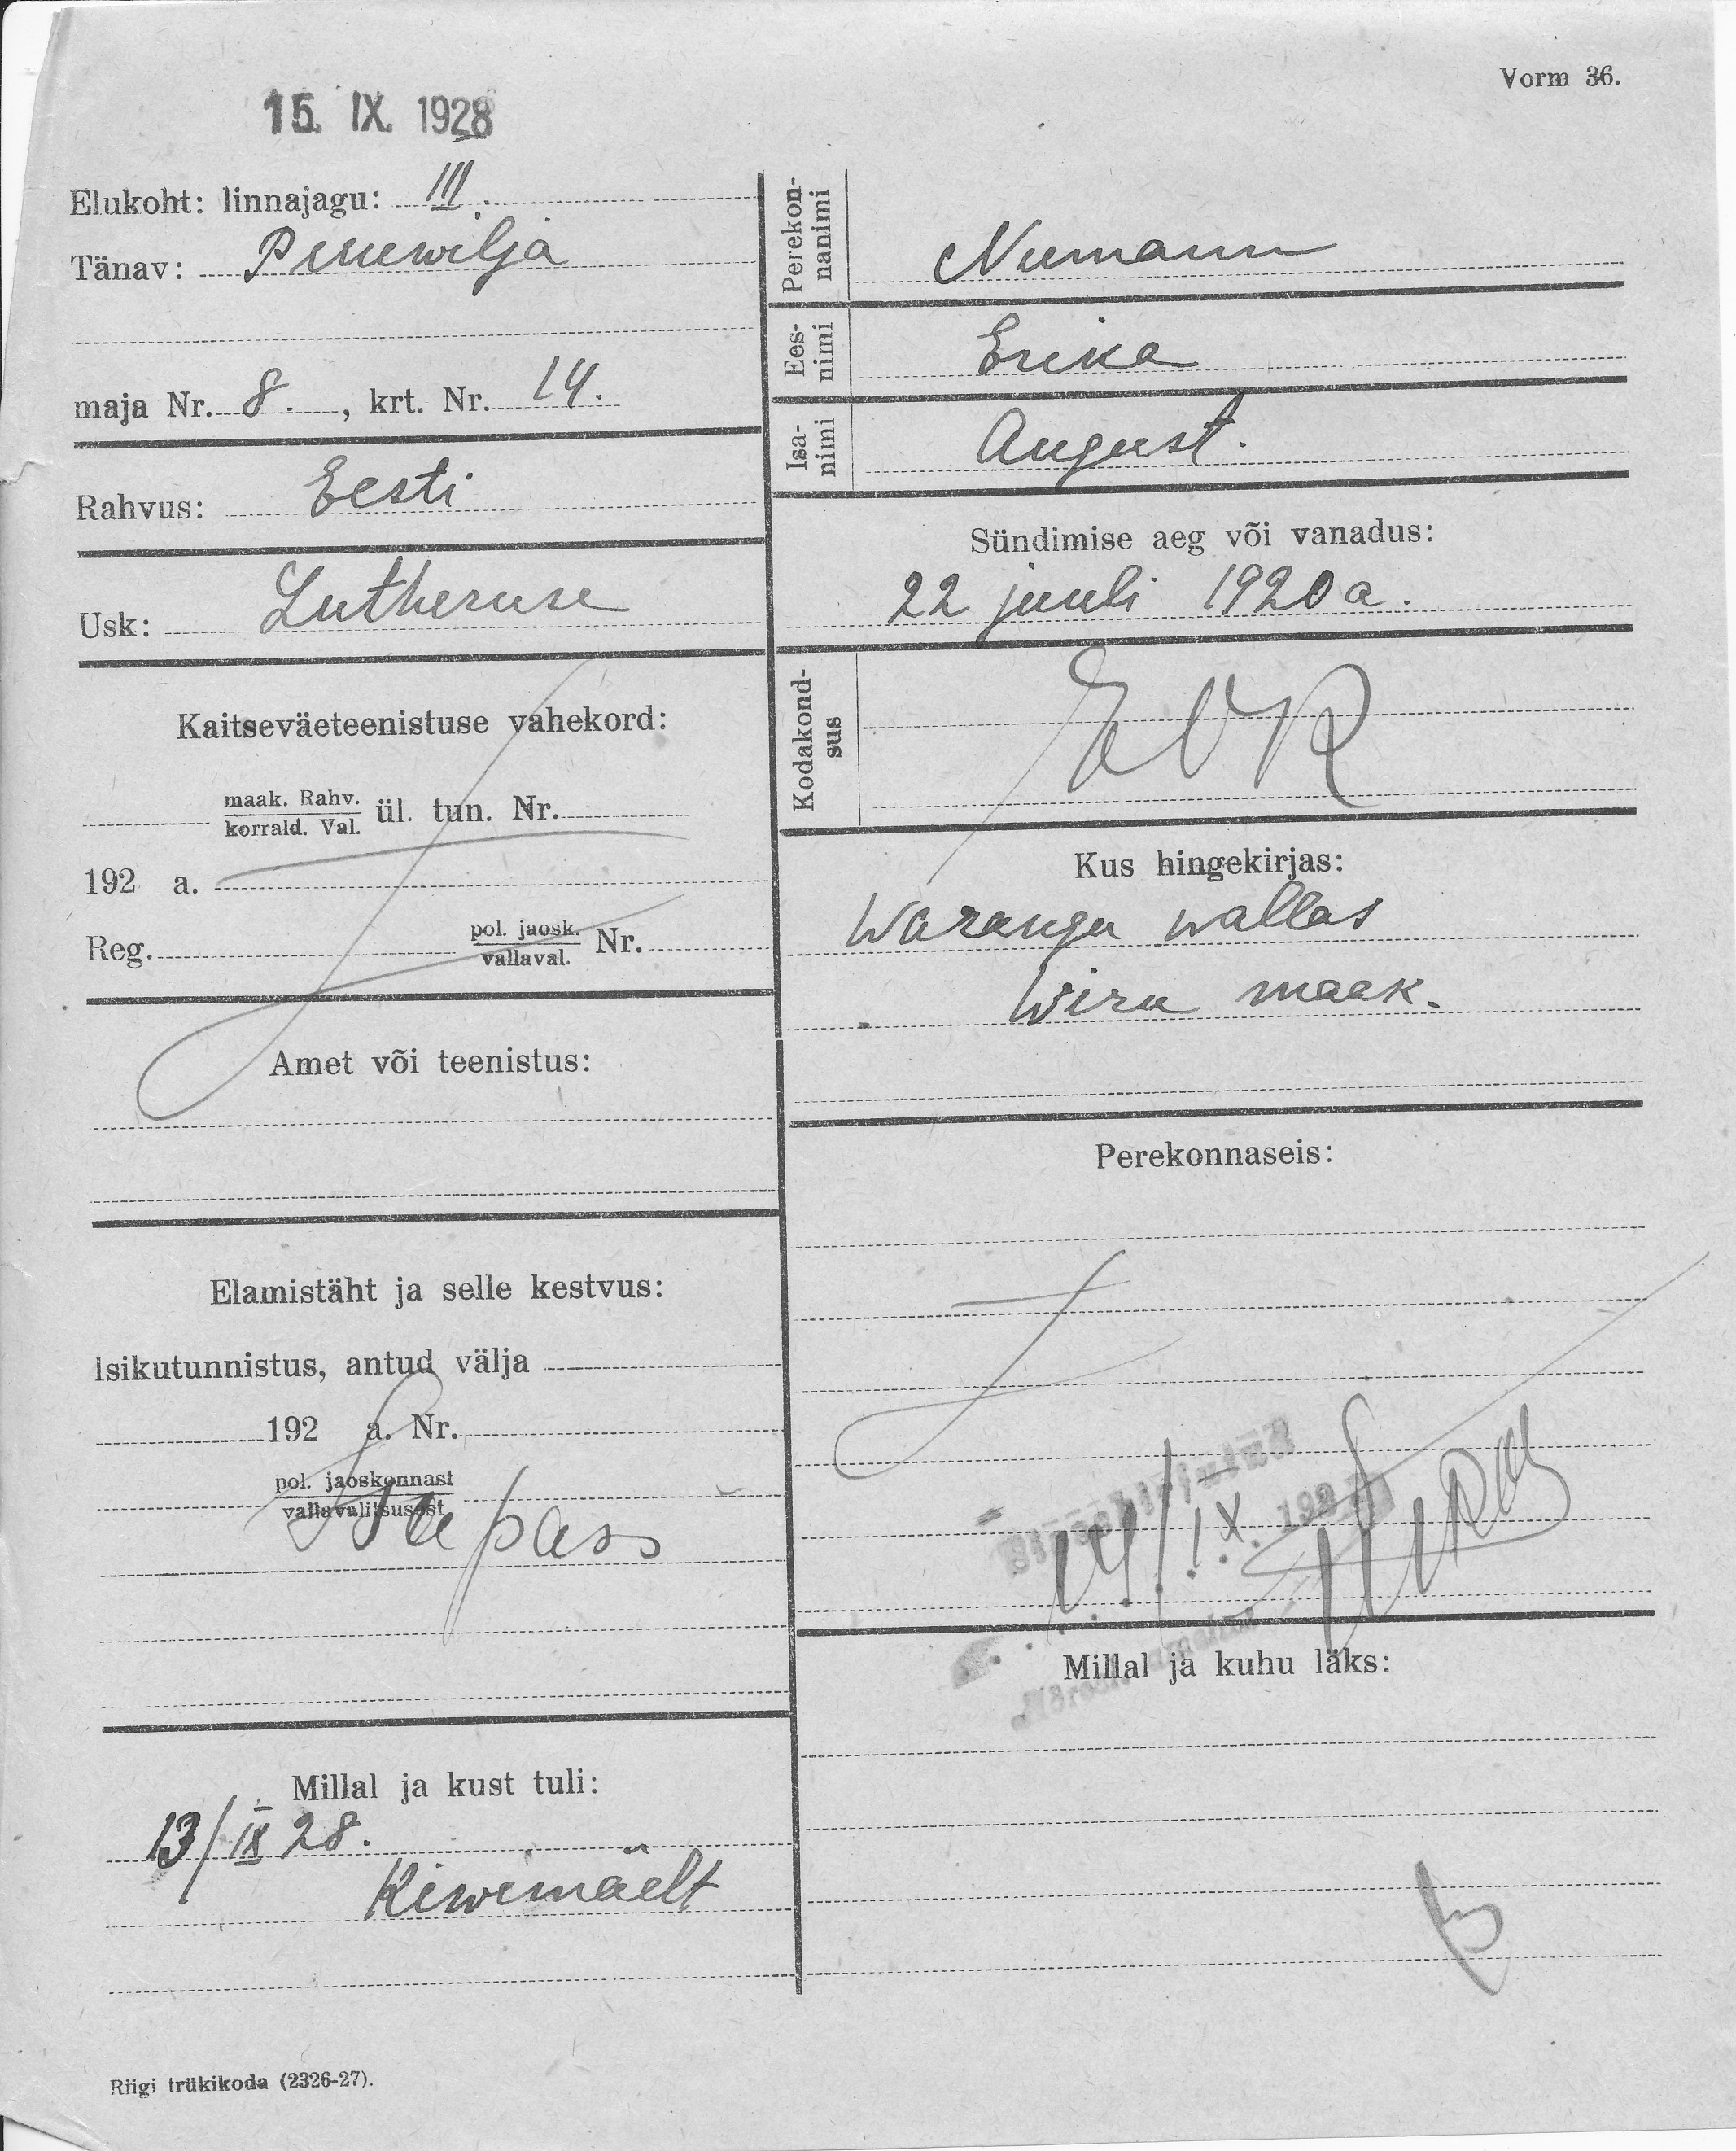 Vorm 36.
15. IX. 1928
Elukoht: linnajagu: III.
Tänav:
maja Nr. 8. , krt. Nr. 14.
Rahvus: Eesti
Usk: Lutheruse
Kaitseväeteenistuse vahekord:
maak. Rahv.
korrald. Val. ül. tun. Nr.
192 a.
Reg. pol. jaosk. Nr.
vallaval.
Amet või teenistus:
Elamistäht ja selle kestvus:
Isikutunnistus, antud välja
192 a. Nr.
pol. jaoskonnast
vallavalitsusest
Isa pass
Millal ja kust tuli:
13/IX 28.
Kiwimäelt
Perekon-
nanimi Neumann
Ees-
nimi Erika
Isa-
nimi August.
Sündimise aeg või vanadus:
22 juuli 1920 a.
Kodakond-
sus EVR
Kus hingekirjas:
Warangu wallas
Wiru maak.
Perekonnaseis:
Sissekirjutud
14/IX. 192
Millal ja kuhu läks:
Riigi trükikoda (2326-27).